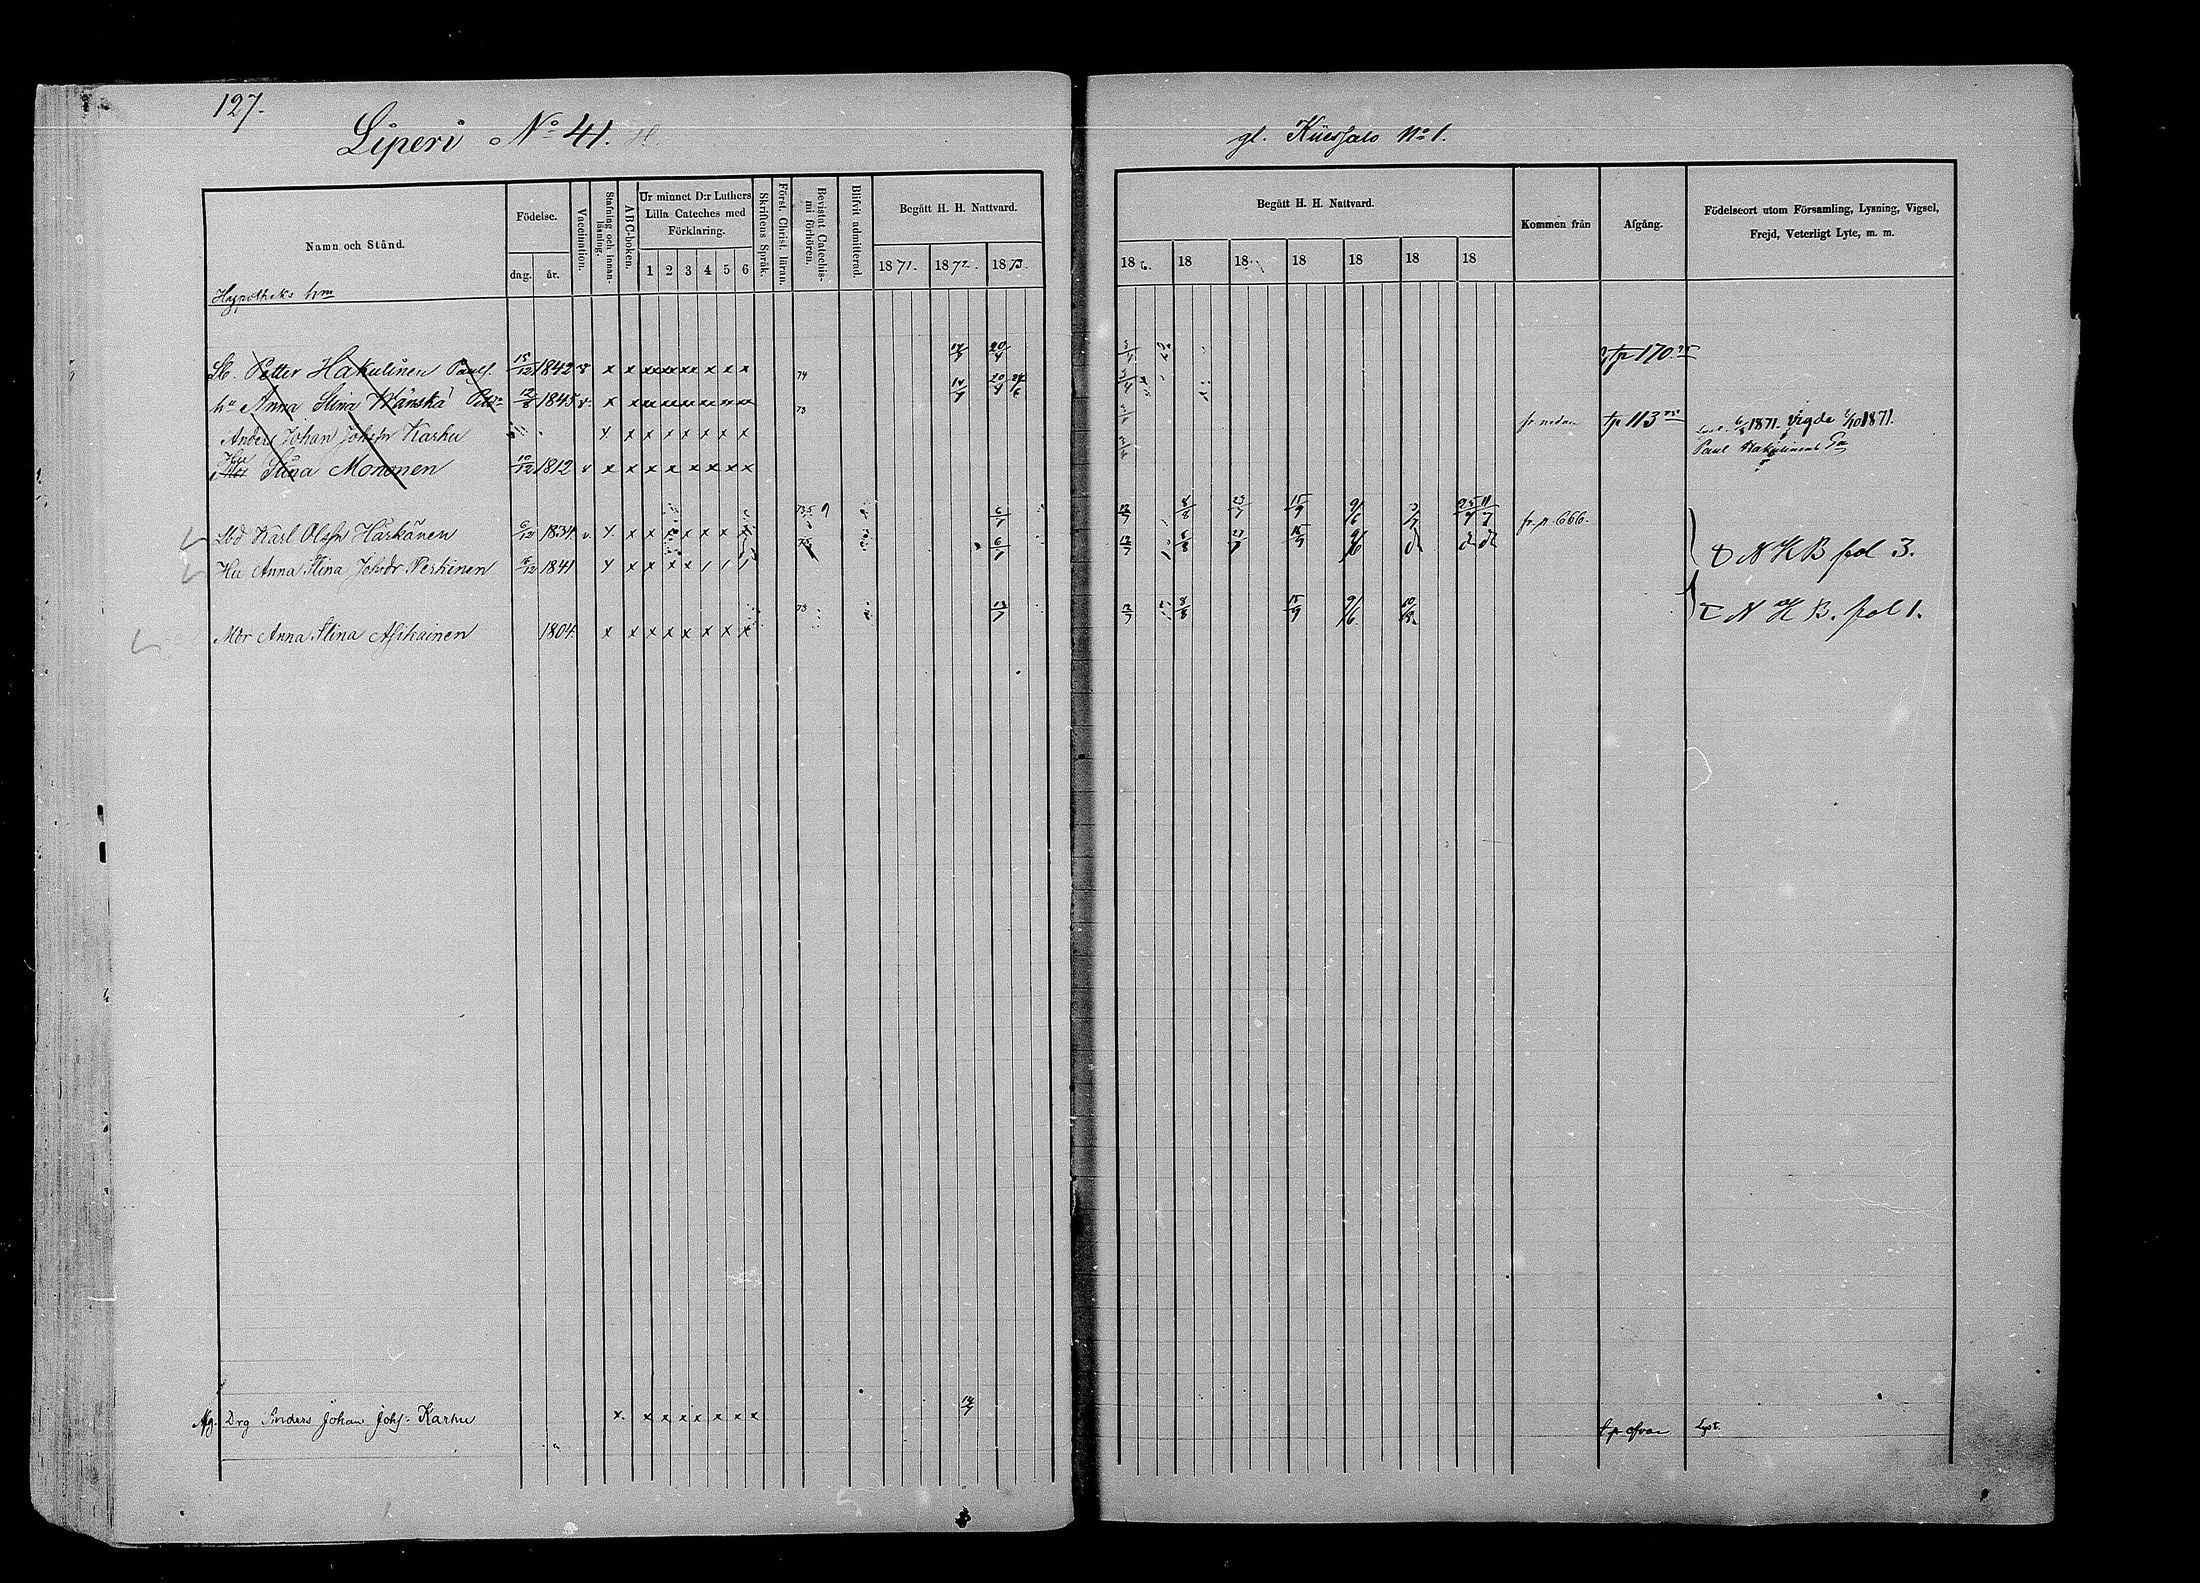 127.
Liperi No 41.
gl. Küessalo No 1.
Namn och Stånd.
Födelse.
dag. år.
Vaccination.
Stafning och innan-läsning.
ABC-boken.
Ur minnet D:r Luthers Lilla Cateches med Förklaring.
1 2 3 4 5 6
Skriftens Språk.
Förist. Christ. läran.
Bevistat Catechis-mi förhören.
Blifvit admitterad.
Begått H. H. Nattvard.
1871. 1872. 1873.
Begått H. H. Nattvard.
18 18 18 18 18 18 18
Kommen från
Afgång.
Födelseort utom Församling, Lysning, Vigsel,
Frejd, Veterligt Lyte, m. m.
Hypotheks hm
Petter Hakulinen Pauls. 15/12 1842 v x x x x x x x x 74 14/7 20/4 3/4 tp 170
hu Anna Stina 12/8 1845 v. x x x x x x x x 73 14/7 20/4 24/6 3/4
Anders Johan Johsn Karhu x x x x x x x x fr nedan tp 113 6/8 1871. Vigde 1/10 1871.
Hu Stina Mononen 10/12 1812 v x x x x x x x x Paul Hakulinens Ea
Lbd Karl Olsfn Härkänen 6/12 1834 v. x x x x x x x 6/7 12/7 8/8 23/7 15/9 9/6 3/7 fr. p. 666.
Hu Anna Stina Johsdr Peskinen 6/12 1841 x x x x x / / / 75 6/7 12/7 8/8 23/7 15/9 9/6 N K B fol 3.
Mor Anna Stina Asikainen 1804. x x x x x x x x 73 13/7 12/7 8/8 15/9 9/6 10/8 N K B. fol 1.
Afg. Drg Anders Johan Johs: Karhu x. x x x x x x x 14/7 tp ofvan Lyst.